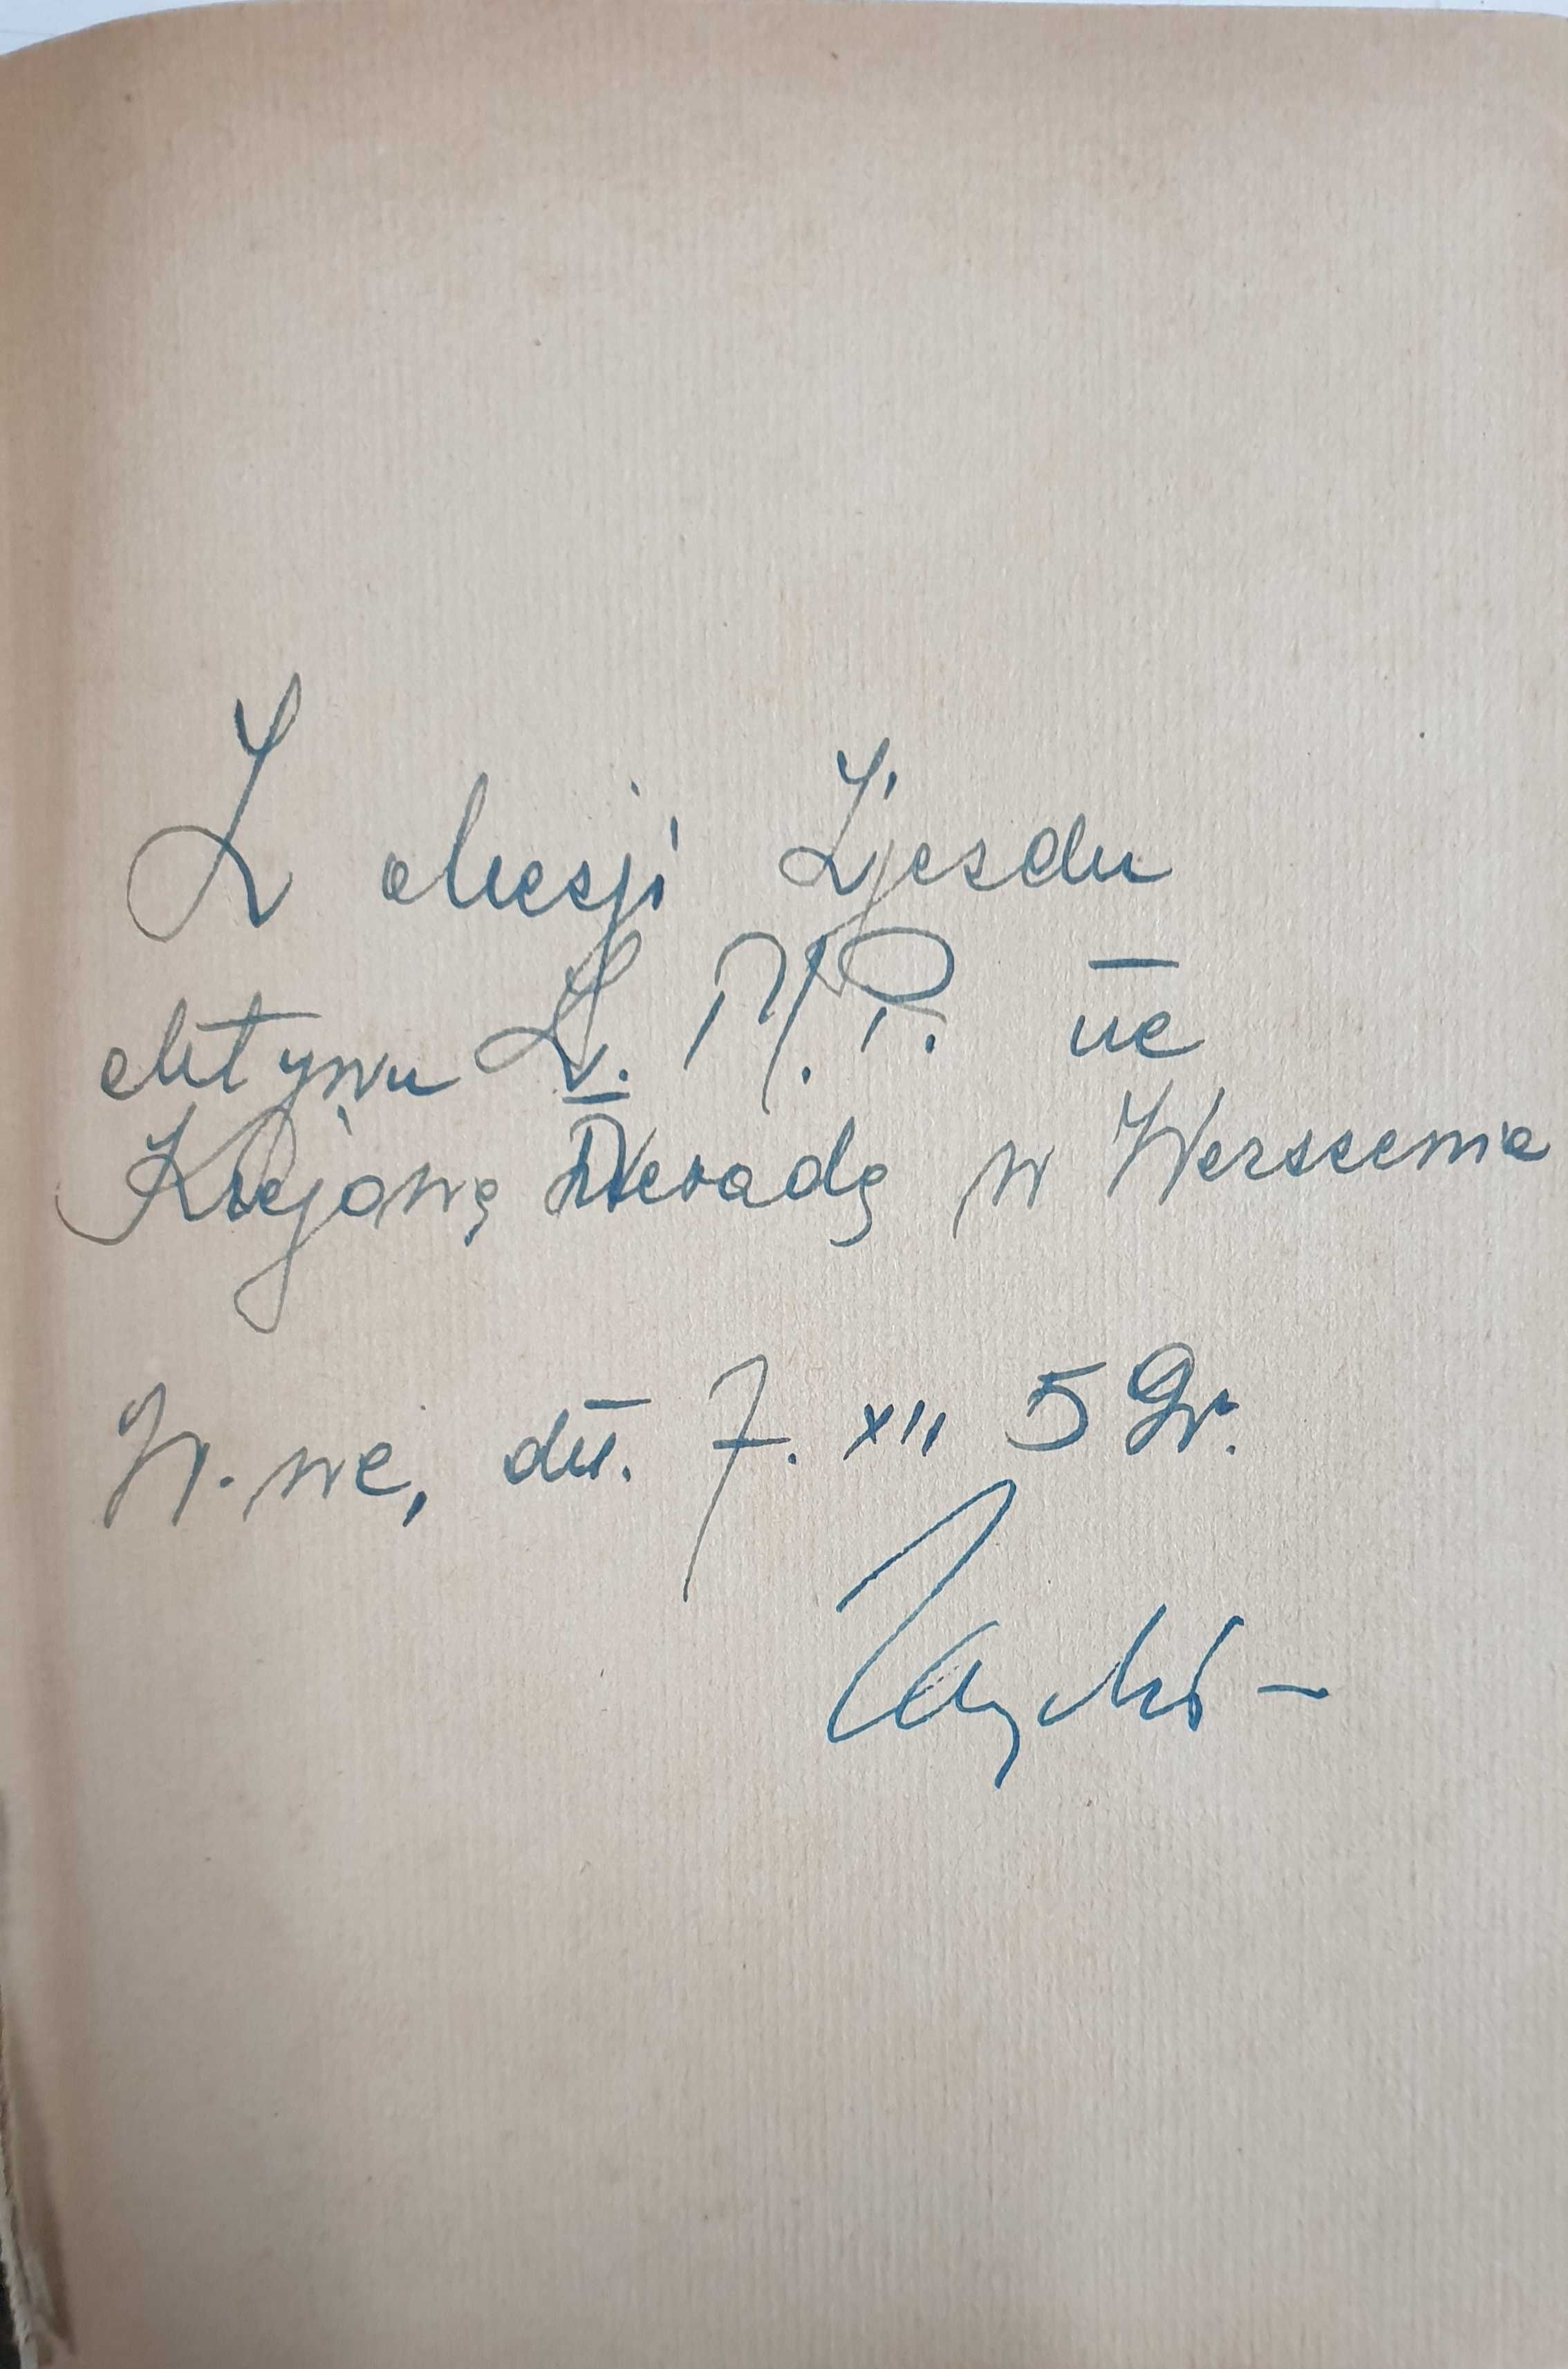 Z okazji Zjazdu
aktywu Z. M. P. na
Krajową Naradę w Warszawie
W-wa, dn. 7. XII 52r.